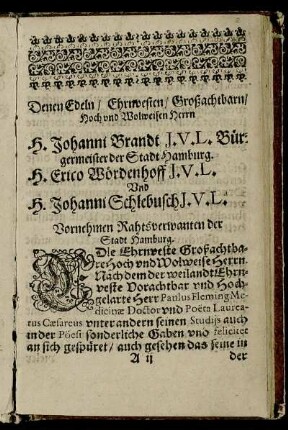 Denen Edeln / Ehrnvesten / Großachtbarn /
Hoch und Wolweisen Herrn
H. Johanni Brandt J.V.L. Bür-
germeister der Stadt Hamburg.
H. Erico Wördenhoff J.V.L.
Und
H. Johanni Schlebusch J.V.L.
Vornehmen Rahtsverwanten der
Stadt Hamburg.
Die Ehrnveste Großachtba-
re Hoch und Wolweise Herrn.
Nach dem der weilandt Ehrn-
veste Vorachtbar und Hoch-
gelarte Herr Paulus Fleming Me-
dicinæ Doctor und Poëta Laurea-
tus Cæsareus unter andern seinen Studijs auch
in der Pöesi sonderliche Gaben und felicitet
an sich gespüret / auch gesehen das seine in
A ij der